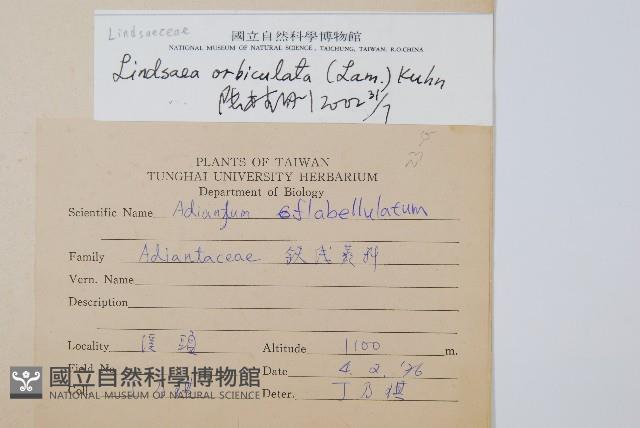 Lindsaeceae
國立自然科學博物館
NATIONAL MUSEUM OF NATURAL SCIENCE, TAICHUNG, TAIWAN, R.O.CHINA
Lindsaea orbiculata (Lam.) Kuhn
2002 31/7
PLANTS OF TAIWAN
TUNGHAI UNIVERSITY HERBARIUM
Department of Biology
Scientific Name Adiantum flabellulatum
Family Adiantaceae 鐵線蕨科
Vern. Name
Description
Locality 溪頭 Altitude 1100 m.
Field No. Date 4. 2. '76
Coll. Deter. 丁乃祺
國立自然科學博物館
NATIONAL MUSEUM OF NATURAL SCIENCE